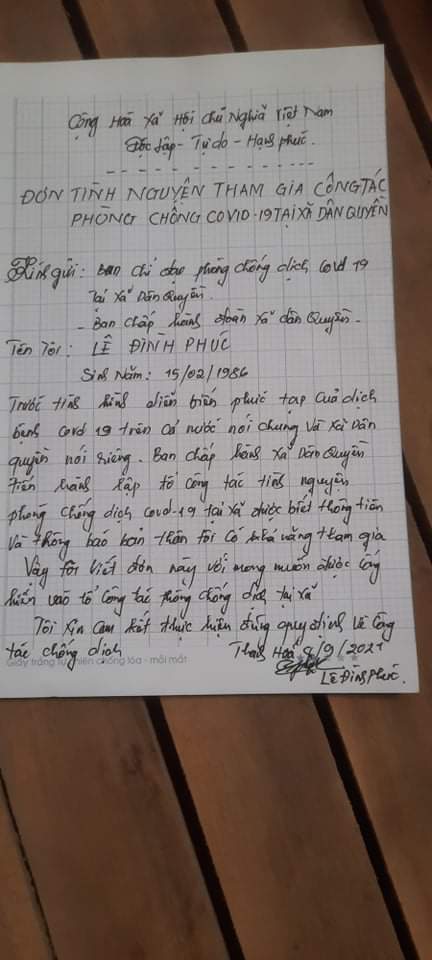 Cộng Hoà Xã Hội Chủ Nghĩa Việt Nam
Độc lập - Tự do - Hạnh phúc.
ĐƠN TÌNH NGUYỆN THAM GIA CÔNG TÁC
PHÒNG CHỐNG COVID-19 TẠI XÃ DÂN QUYỀN
Kính gửi: Ban chỉ đạo phòng chống dịch Covd 19
Tại xã Dân Quyền.
- Ban chấp hành đoàn xã dân Quyền.
Tên Tôi: LÊ ĐÌNH PHÚC
Sinh Năm: 15/02/1986
Trước tình hình diễn biến phức tạp của dịch
bệnh Covd 19 trên cả nước nói chung và xã Dân
quyền nói riêng. Ban chấp hành xã Dân Quyền
tiến hành lập tổ công tác tình nguyện
phòng chống dịch Covd-19 tại xã được biết thông tin
và thông báo bản thân tôi có khả năng tham gia
Vậy tôi viết đơn này với mong muốn được cống
hiến vào tổ công tác phòng chống dịch tại xã
Tôi xin cam kết thực hiện đúng quy định về công
tác chống dịch Thanh Hoá 8/9/2021
Giấy trắng tự nhiên chống lóa - mỏi mắt
Lê Đình Phúc.